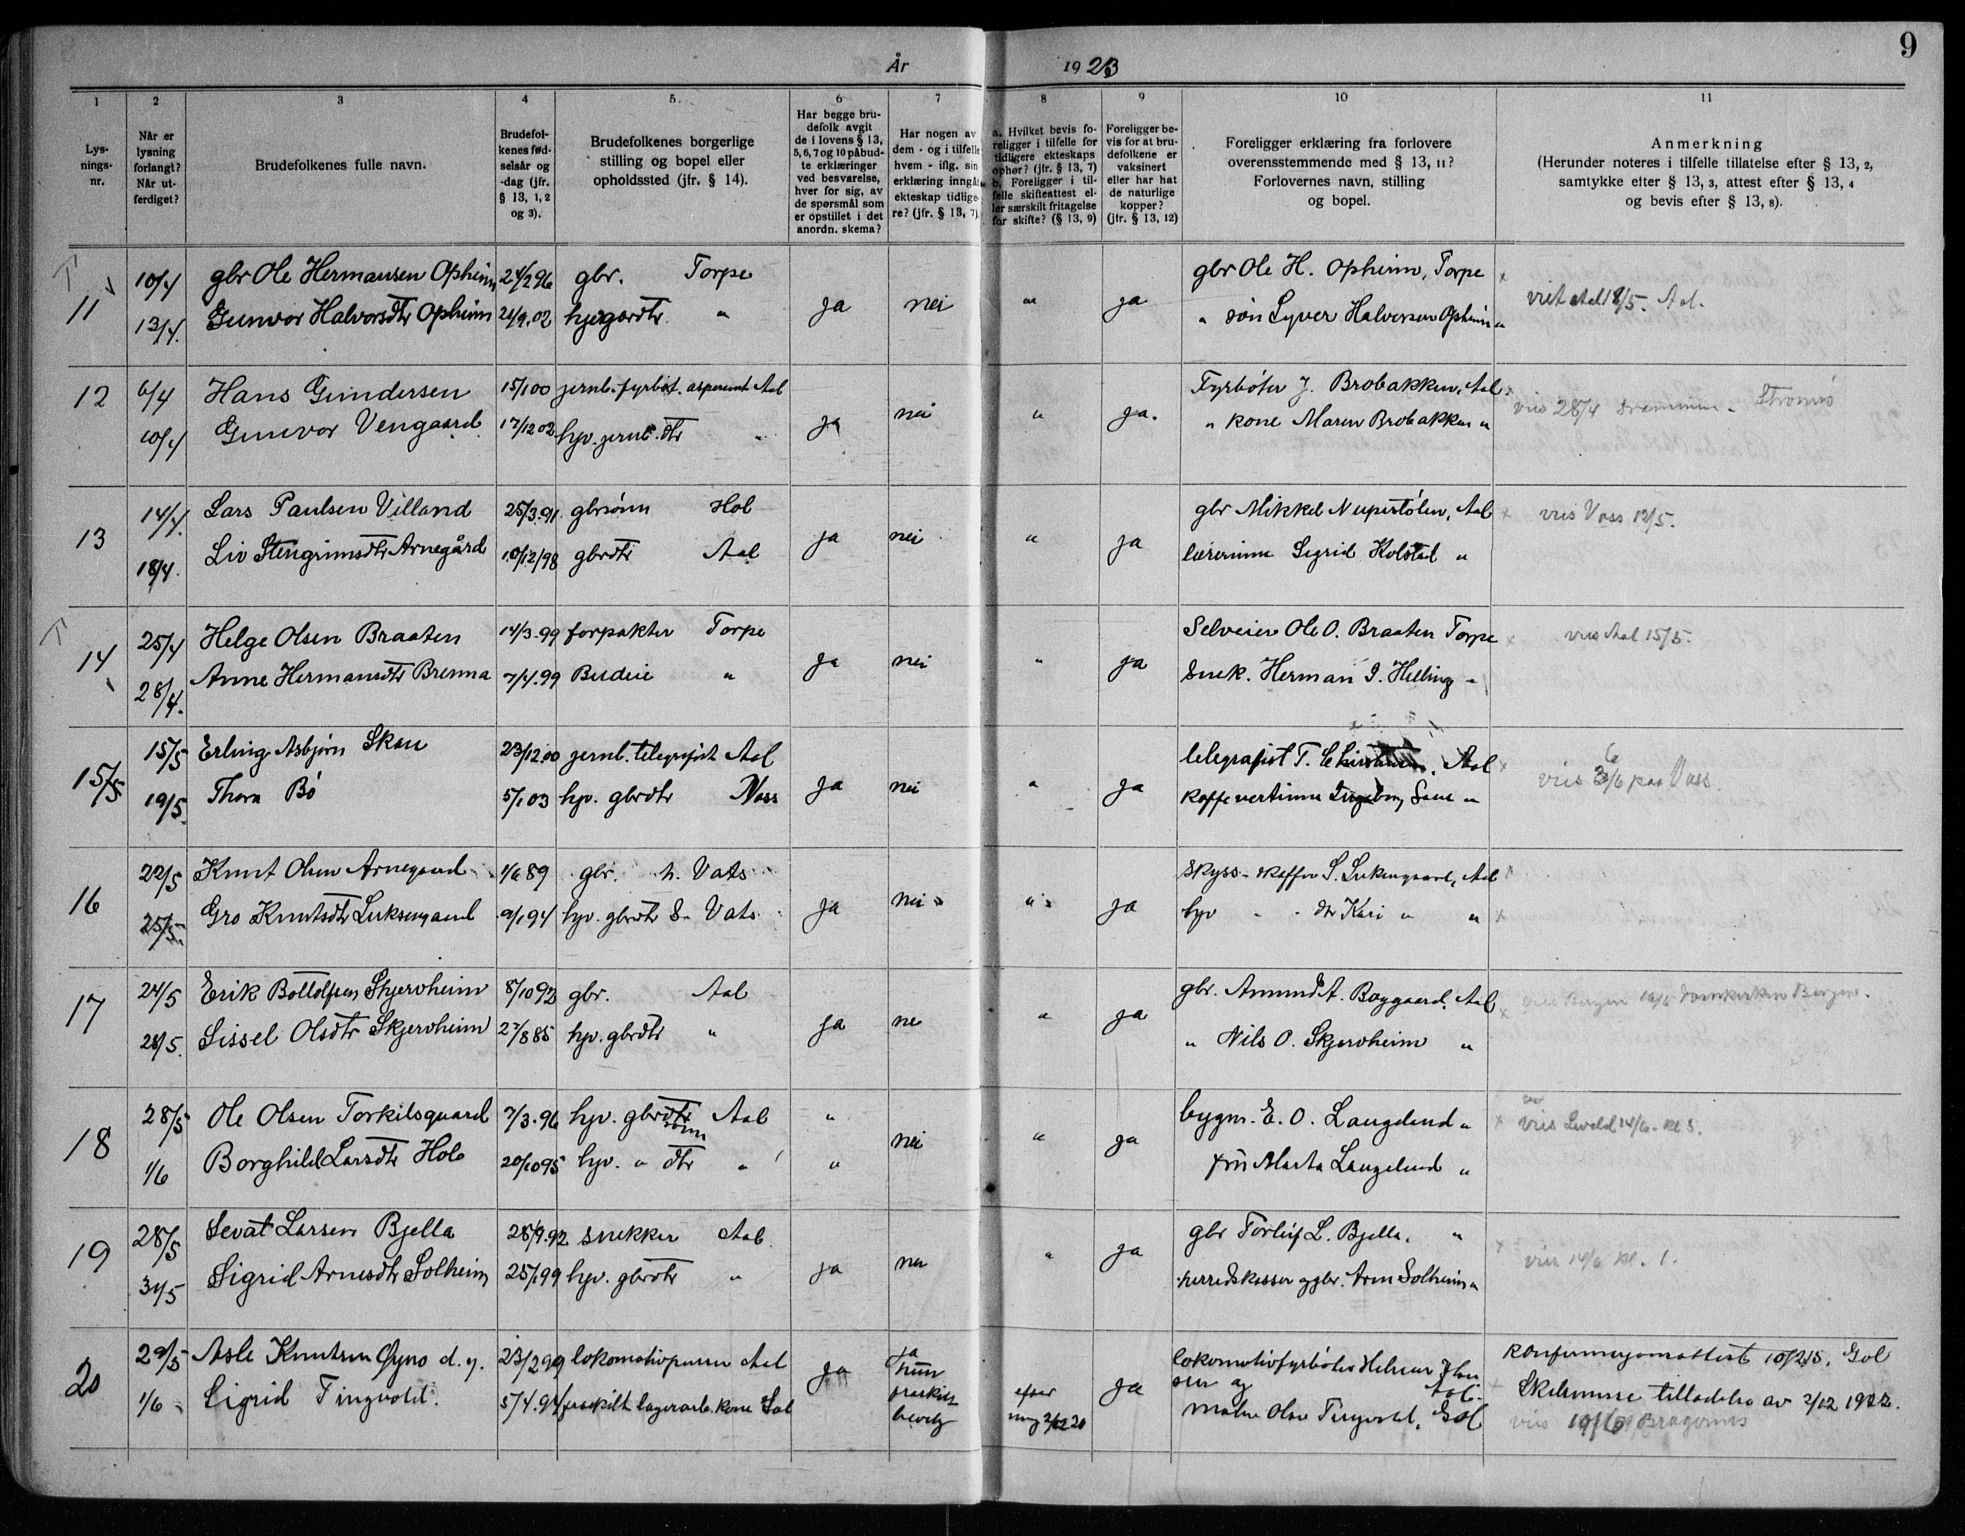 9
År 1923
1 2 3 4 5 6 7 8 9 10 11
Lysningsnr.
Når er lysning forlangt? Når utferdiget?
Brudefolkenes fulle navn.
Brudefolkenes fødselsår og -dag (jfr. § 13, 1, 2 og 3).
Brudefolkenes borgerlige stilling og bopel eller opholdssted (jfr. § 14).
Har begge brudefolk avgit de i lovens § 13, 5, 6, 7 og 10 påbudte erklæringer ved besvarelse, hver for sig, av de spørsmål som er opstillet i det anordn. skema?
Har nogen av dem - og i tilfelle hvem - iflg. sin erklæring inngått ekteskap tidligere? (jfr. § 13, 7).
a. Hvilket bevis foreligger i tilfelle for tidligere ekteskaps ophør? (jfr. § 13, 7) b. Foreligger i tilfelle skifteattest eller særskilt fritagelse for skifte? (§ 13, 9)
Foreligger bevis for at brudefolkene er vaksinert eller har hat de naturlige kopper? (jfr. § 13, 12)
Foreligger erklæring fra forlovere overensstemmende med § 13, 11? Forlovernes navn, stilling og bopel.
Anmerkning (Herunder noteres i tilfelle tillatelse efter § 13, 2, samtykke efter § 13, 3, attest efter § 13, 4 og bevis efter § 13, 8).
11 10/4 gbr Ole Hermansen Opheim 24/2 96 gbr. Torpe ja nei " ja gbr Ole H. Opheim, Torpe
13/4. Gunvor Halvorsdtr Opheim 21/9. 02 " " søn Syver Halvorsen Opheim "
12 6/4 Hans Gundersen 15/1 00 jernb. fyrbøt. aspirant Aal ja nei " ja. Fyrbøter J. Brobakken, Aal
10/4 Gunvor Vengaard 17/12 02 hjv. jernb. dtr " " kone Maren Brobakken "
13 14/4. Lars Paulsen Villand 25/3. 91. gbrsønn Hol ja nei " ja gbr Mikkel Nupenstølen, Aal vies Voss 12/5.
18/4. Liv Stengrimsdtr Arnegård 10/12/98 gbrdtr Aal lærerinne Sigrid Kolstad "
14 25/4 Helge Olsen Braaten 14/3. 99 forpakter Torpe ja nei " ja Selveier Ole O. Braaten Torpe vies Aal 15/5.
28/4. Anne Hermansdtr Brenna 7/4. 99 Budeie " Snek. Herman I. Helling "
15 15/5 Erling Asbjørn Skau 23/12. 00 jernb. telegrafist Aal ja nei " ja telegrafist T. Aal vies 3/6 paa Voss.
19/5. Thora Bø 5/1 03 hp. gbrdtr Voss kaffevertinne Ingeborg "
16 22/5 Knut Olsen Arnegaard 1/6 89 gbr. n. Vats ja nei " ja Skyss-skaffer S. Aal
25/5. Gro Knutsdtr 9/1 94 hjv. gbrdtr S. Vats hjv " " dtr Kari " "
17 24/5 Erik Bottolfsen Skjervheim 8/10 92 gbr. Aal ja nei " ja gbr. Amund A. Bøygaard. Aal vies Bergen Domkirken Bergen.
28/5. Sissel Olsdtr Skjervheim 27/8 85 hjv. gbrdtr " " Nils O. Skjervheim "
18 28/5 Ole Olsen Torkilsgaard 7/3. 96 hjv. gbrdtr sønn Aal " nei " ja bygm. E. O. Langelund " vies 14/6. kl 5.
1/6 Borghild Larsdtr Hole 20/10 95 hjv. " dtr " " fru Marta Langelund "
19 28/5 Sevat Larsen Bjella 28/9. 92 snekker Aal. ja nei " ja gbr Torleif L. Bjella. " vies 14/6 kl. 1.
31/5 Sigrid Arnesdtr Solheim 25/1 99 hjv. gbrdtr " herredskasserer gbr. Arne Solheim "
20 29/5 Asle Knutsen Øyno d. y. 23/2 99 lokomotivpusser Aal ja ja hun fraskilt ja lokomotivfyrbøter Aal. konfirmasjonsattest Gol
1/6 Sigrid Tingvold. 5/4. 94 fraskilt lagerarb. kone Gol 2/12 20 Olav Tingvold, Gol Skilsmisse tilladelse av 2/12 1922.
vies 19/6 Bragernes